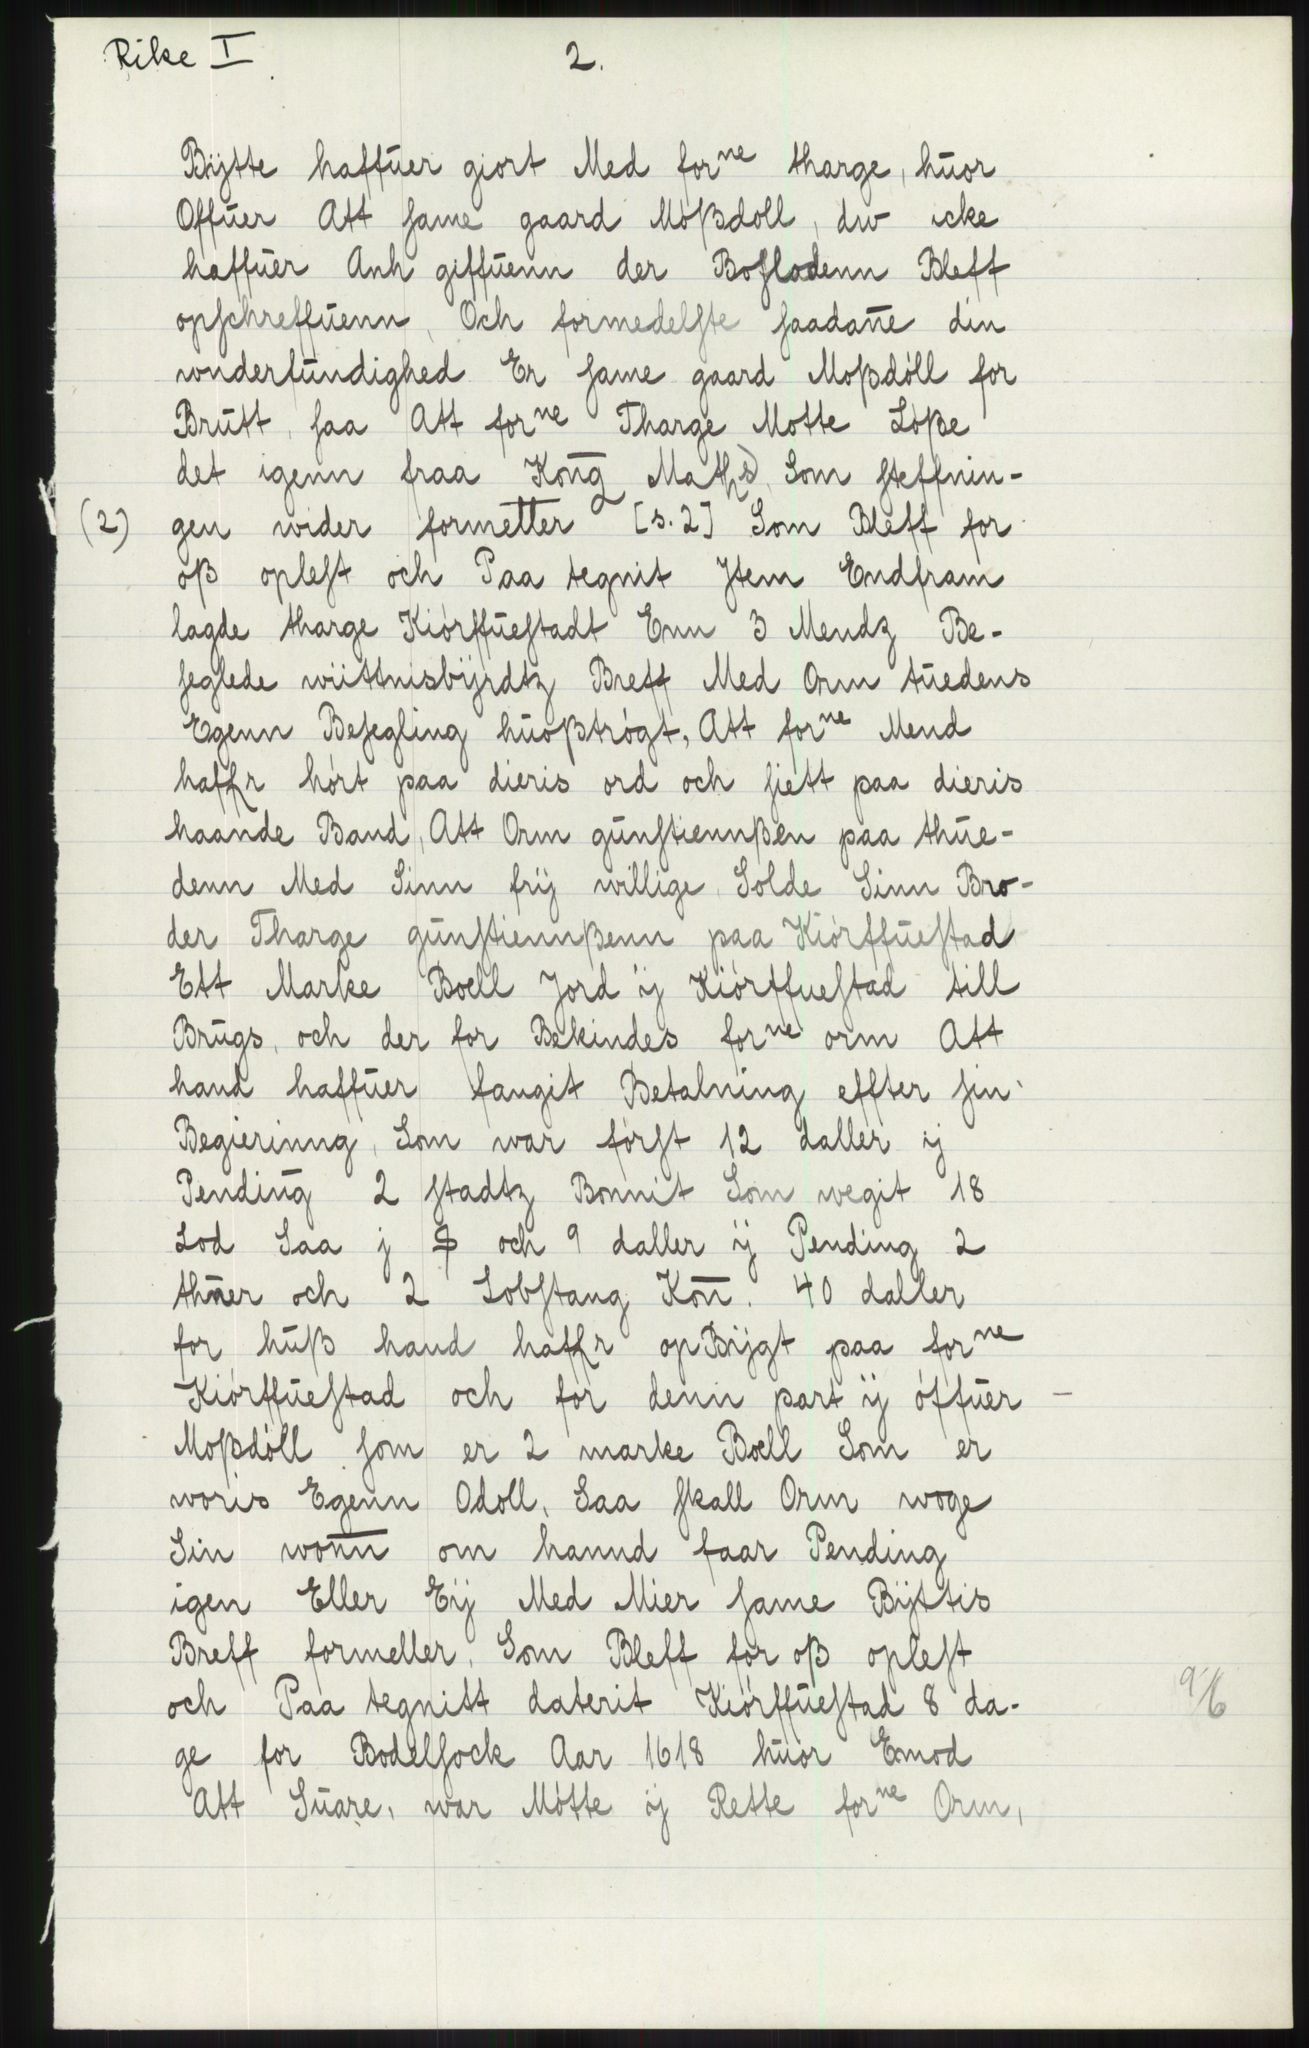 Rike I
2.
Bijtte haffuer giort Med for^ne tharge, huor
Offuer Att same gaard Moßdoll, dw icke
haffuer Anh giffuenn der Boflodenn Bleff
opschreffuenn, Och formedelste saadañe din
wnderfundighed Er same gaard Moßdóll for
Brutt, saa Att for^ne Tharge Motte Lóße
det igenn fraa Kong Mathß, Som steffnin-
(2) gen wider formetter [s. 2] Som Bleff for
oß oplest och Paa tegnit Jtem Endfram
lagde tharge Kiórffuestadt Enn 3 Mendz Be-
seglede wiittnisbijrdtz Breff Med Orm tuedens
Egenn Besegling huoßtrógt, Att for^ne Mend
haffr hórt paa dieris ord och siett paa dieris
haande Band, Att Orm gunstiennßen paa thue-
denn Med Sinn frij willige Solde Sinn Bro-
der Tharge gunstiennßenn paa Kiórffuestad
Ett Marke Boell Jord ij Kiórffuestad till
Brugs, och der for Bekindes for^ne orm Att
hand haffuer fangit Betalning effter sin
Begierinng, Som war fórst 12 daller ij
Pending 2 stadtz Bonnit Som wegit 18
Lod Saa j och 9 daller ij Pending 2
thñer och 2 Lobstang Koñ. 40 daller
for huß hand haffr opBijgt paa for^ne
Kiórffuestad och for denn part ij óffuer -
Moßdóll som er 2 marke Boell Som er
woris Egenn Odoll, Saa skall Orm woge
Sin wonn om hannd faar Pending
igen Eller Eij Med Mier same Bijttis
Breff formeller, Som Bleff for oß oplest
och Paa tegnitt daterit Kiórffuestad 8 da-
ge for Bodelsock Aar 1618 huor Emod
Att Suare, war Mótte ij Rette for^ne Orm,
9/6